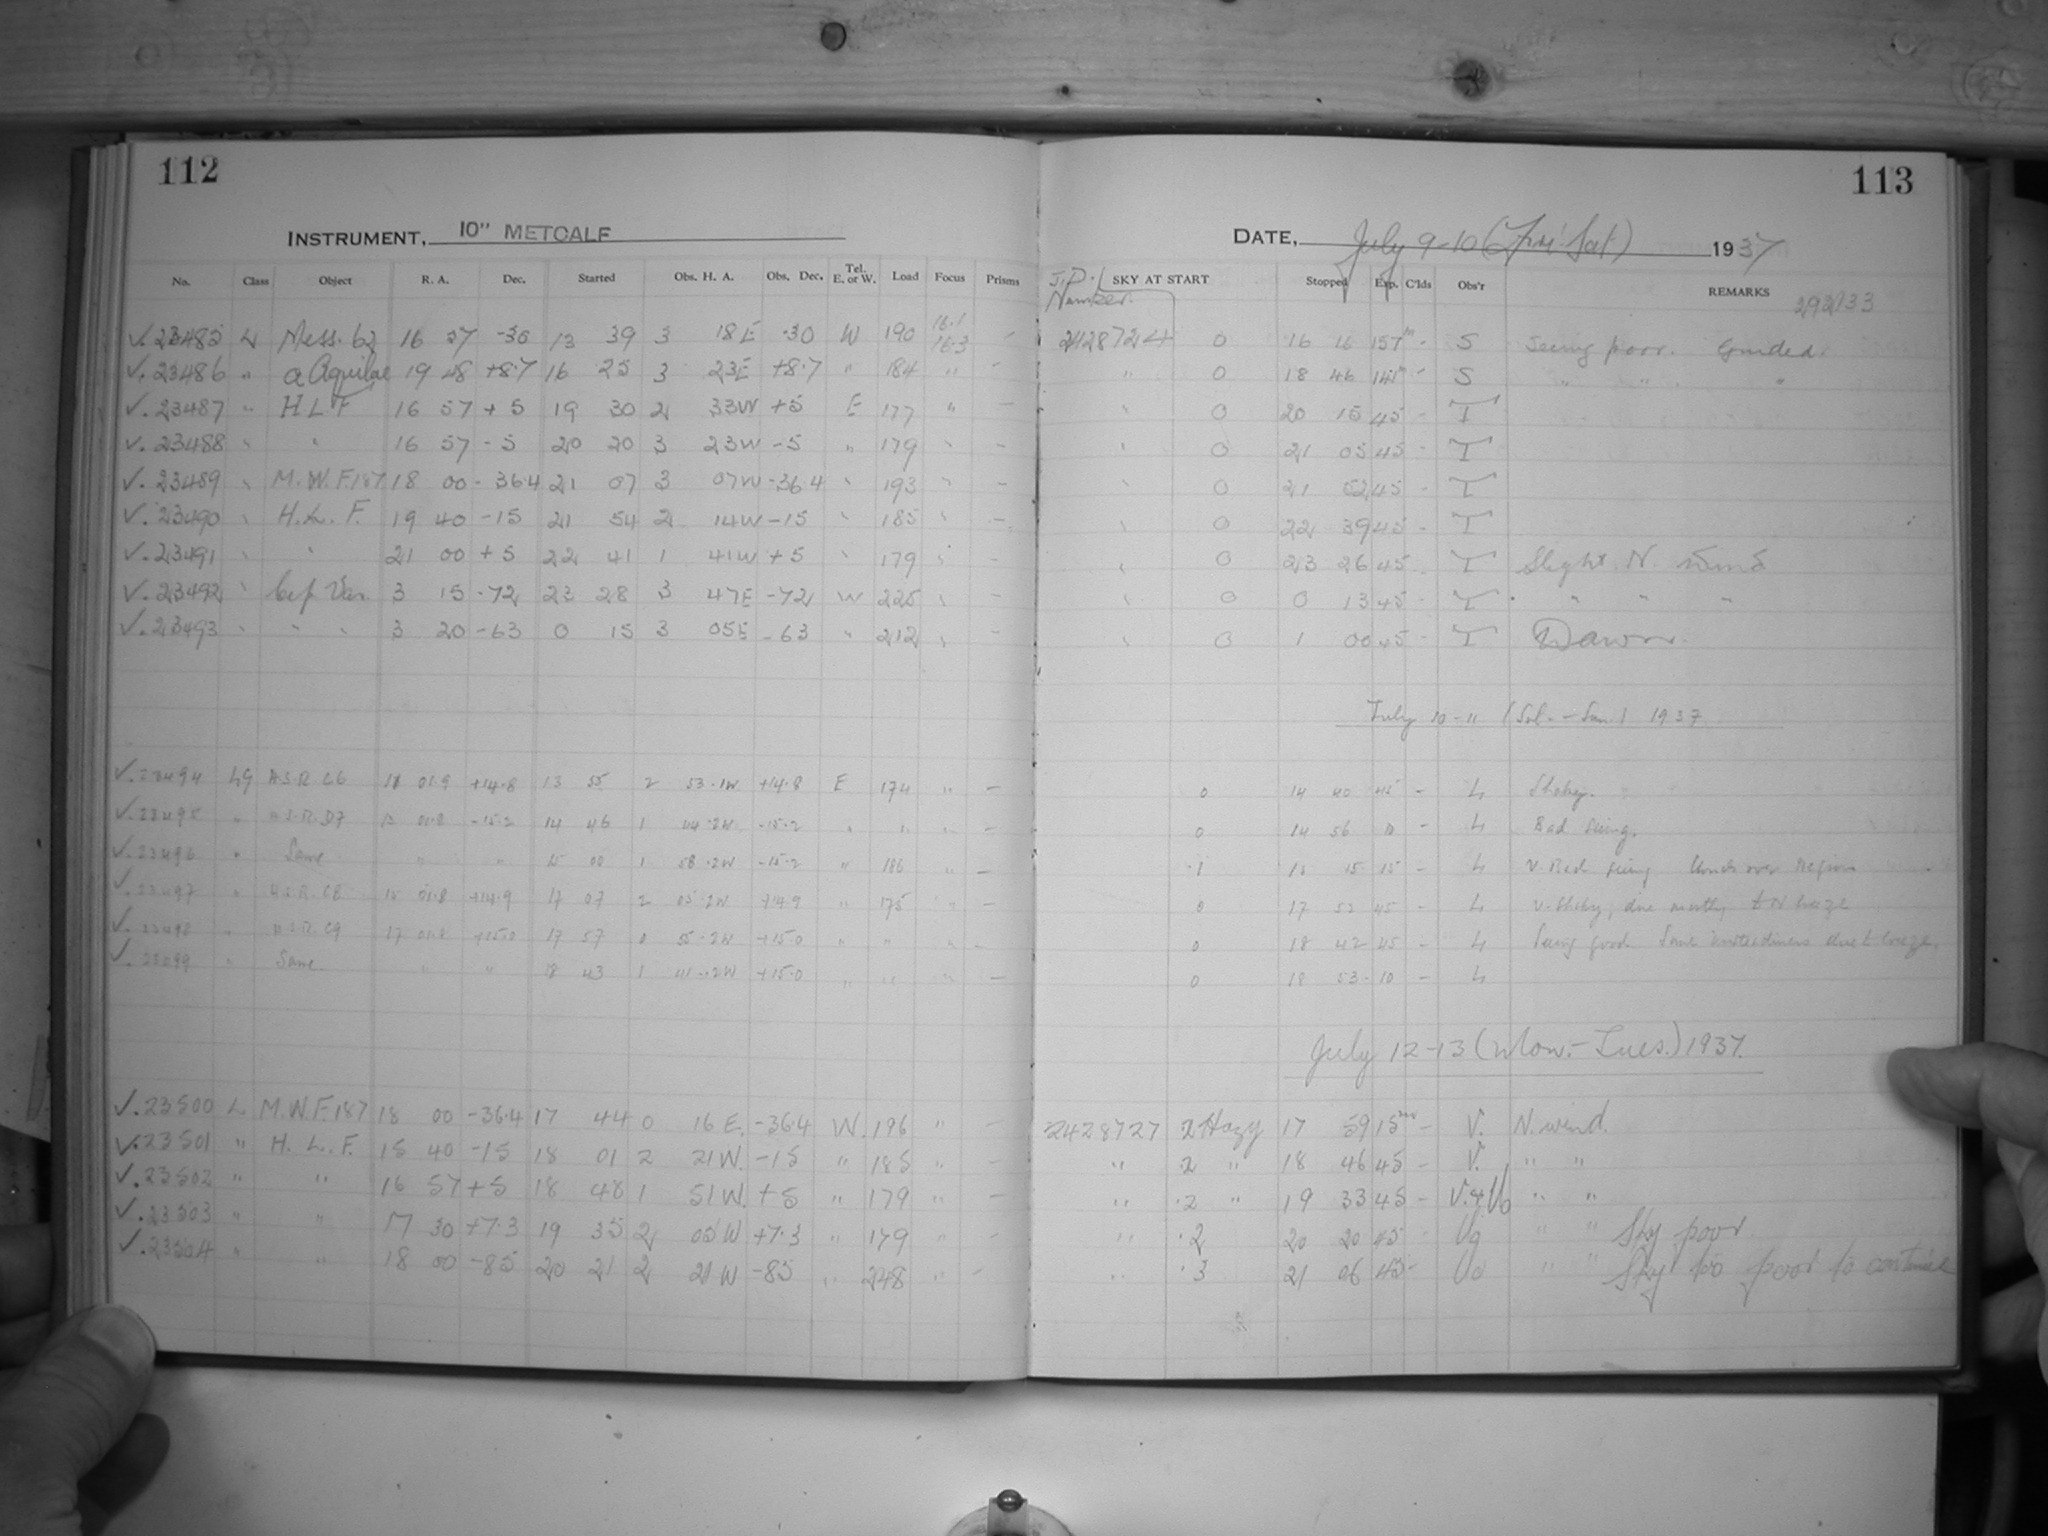 112
113
INSTRUMENT, 10" METCALF
DATE, July 9-10 (Fri-Sat) 1937
No. Class Object R. A. Dec. Started Obs. H. A. Obs. Dec. Tel. E. or W. Load Focus Prisms
J.D. Number. SKY AT START Stopped Exp. C'lds Obs'r REMARKS
✓.23485 L Mess. 62 16 57 -30 13 39 3 18E -30 W 190 16.1 16.3 - 2428724 0 16 16 157m - S Seeing poor. Guided.
✓.23486 " α Aquilae 19 48 +8.7 16 25 3 23E +8.7 " 184 " - " 0 18 46 141m - S " " "
✓.23487 " H L F 16 57 +5 19 30 2 33W +5 E 177 " - " 0 20 15 45 - T
✓.23488 " " 16 57 -5 20 20 3 23W -5 " 179 " - " 0 21 05 45 - T
✓.23489 " M.W.F.187 18 00 -36.4 21 07 3 07W -36.4 " 193 " - " 0 21 52 45 - T
✓.23490 " H. L. F. 19 40 -15 21 54 2 14W -15 " 185 " - " 0 22 39 45 - T
✓.23491 " " 21 00 +5 22 41 1 41W +5 " 179 " - " 0 23 26 45 - T Slight N. wind
✓.23492 " Cep Var. 3 15 -72 23 28 3 47E -72 W 225 " - " 0 0 13 45 - T " " "
✓.23493 " " " 3 20 -63 0 15 3 05E -63 " 212 " - " 0 1 00 45 - T Dawn.
July 10-11 (Sat.-Sun) 1937
✓.23494 LG H.S.R. C6 01.9 +14.8 13 55 2 53.1W +14.8 E 174 " - 0 14 40 45 - L Shaky.
✓.23495 " H.S.R. D7 01.8 -15.2 14 46 1 44.2W -15.2 " " " - 0 14 56 10 - L Bad seeing.
✓.23496 " Same " " 15 00 1 58.2W -15.2 " 186 " - .1 15 15 15 - L V. Bad seeing Clouds over region
✓.23497 " H.S.R. C8 15 01.8 +14.9 17 07 2 05.2W +14.9 " 175 " - 0 17 52 45 - L V. Shaky, due mostly to N breeze
✓.23498 " H.S.R. C9 17 01.8 +15.0 17 57 0 55.2W +15.0 " " " - 0 18 42 45 - L Seeing good. Some unsteadiness due to breeze.
✓.23499 " Same " " 18 43 1 41.2W +15.0 " " " - 0 18 53 10 - L
July 12-13 (Mon.-Tues.) 1937.
✓.23500 L M.W.F.187 18 00 -36.4 17 44 0 16E. -36.4 W. 196 " - 2428727 .2 Hazy 17 59 15m - V. N. wind.
✓.23501 " H. L. F. 15 40 -15 18 01 2 21W. -15 " 185 " - " .2 " 18 46 45 - V. " "
✓.23502 " " 16 57 +5 18 48 1 51W. +5 " 179 " - " .2 " 19 33 45 - V. & " "
✓.23503 " " 17 30 +7.3 19 35 2 05W +7.3 " 179 " - " .2 20 20 45 - " " Sky poor
✓.23504 " " 18 00 -85 20 21 2 21W -85 " 248 " - " .3 21 06 45 - " " Sky too poor to continue